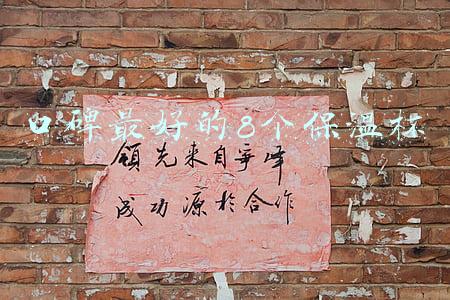 口碑最好的8个保温杯
领先来自争峰
成功源于合作